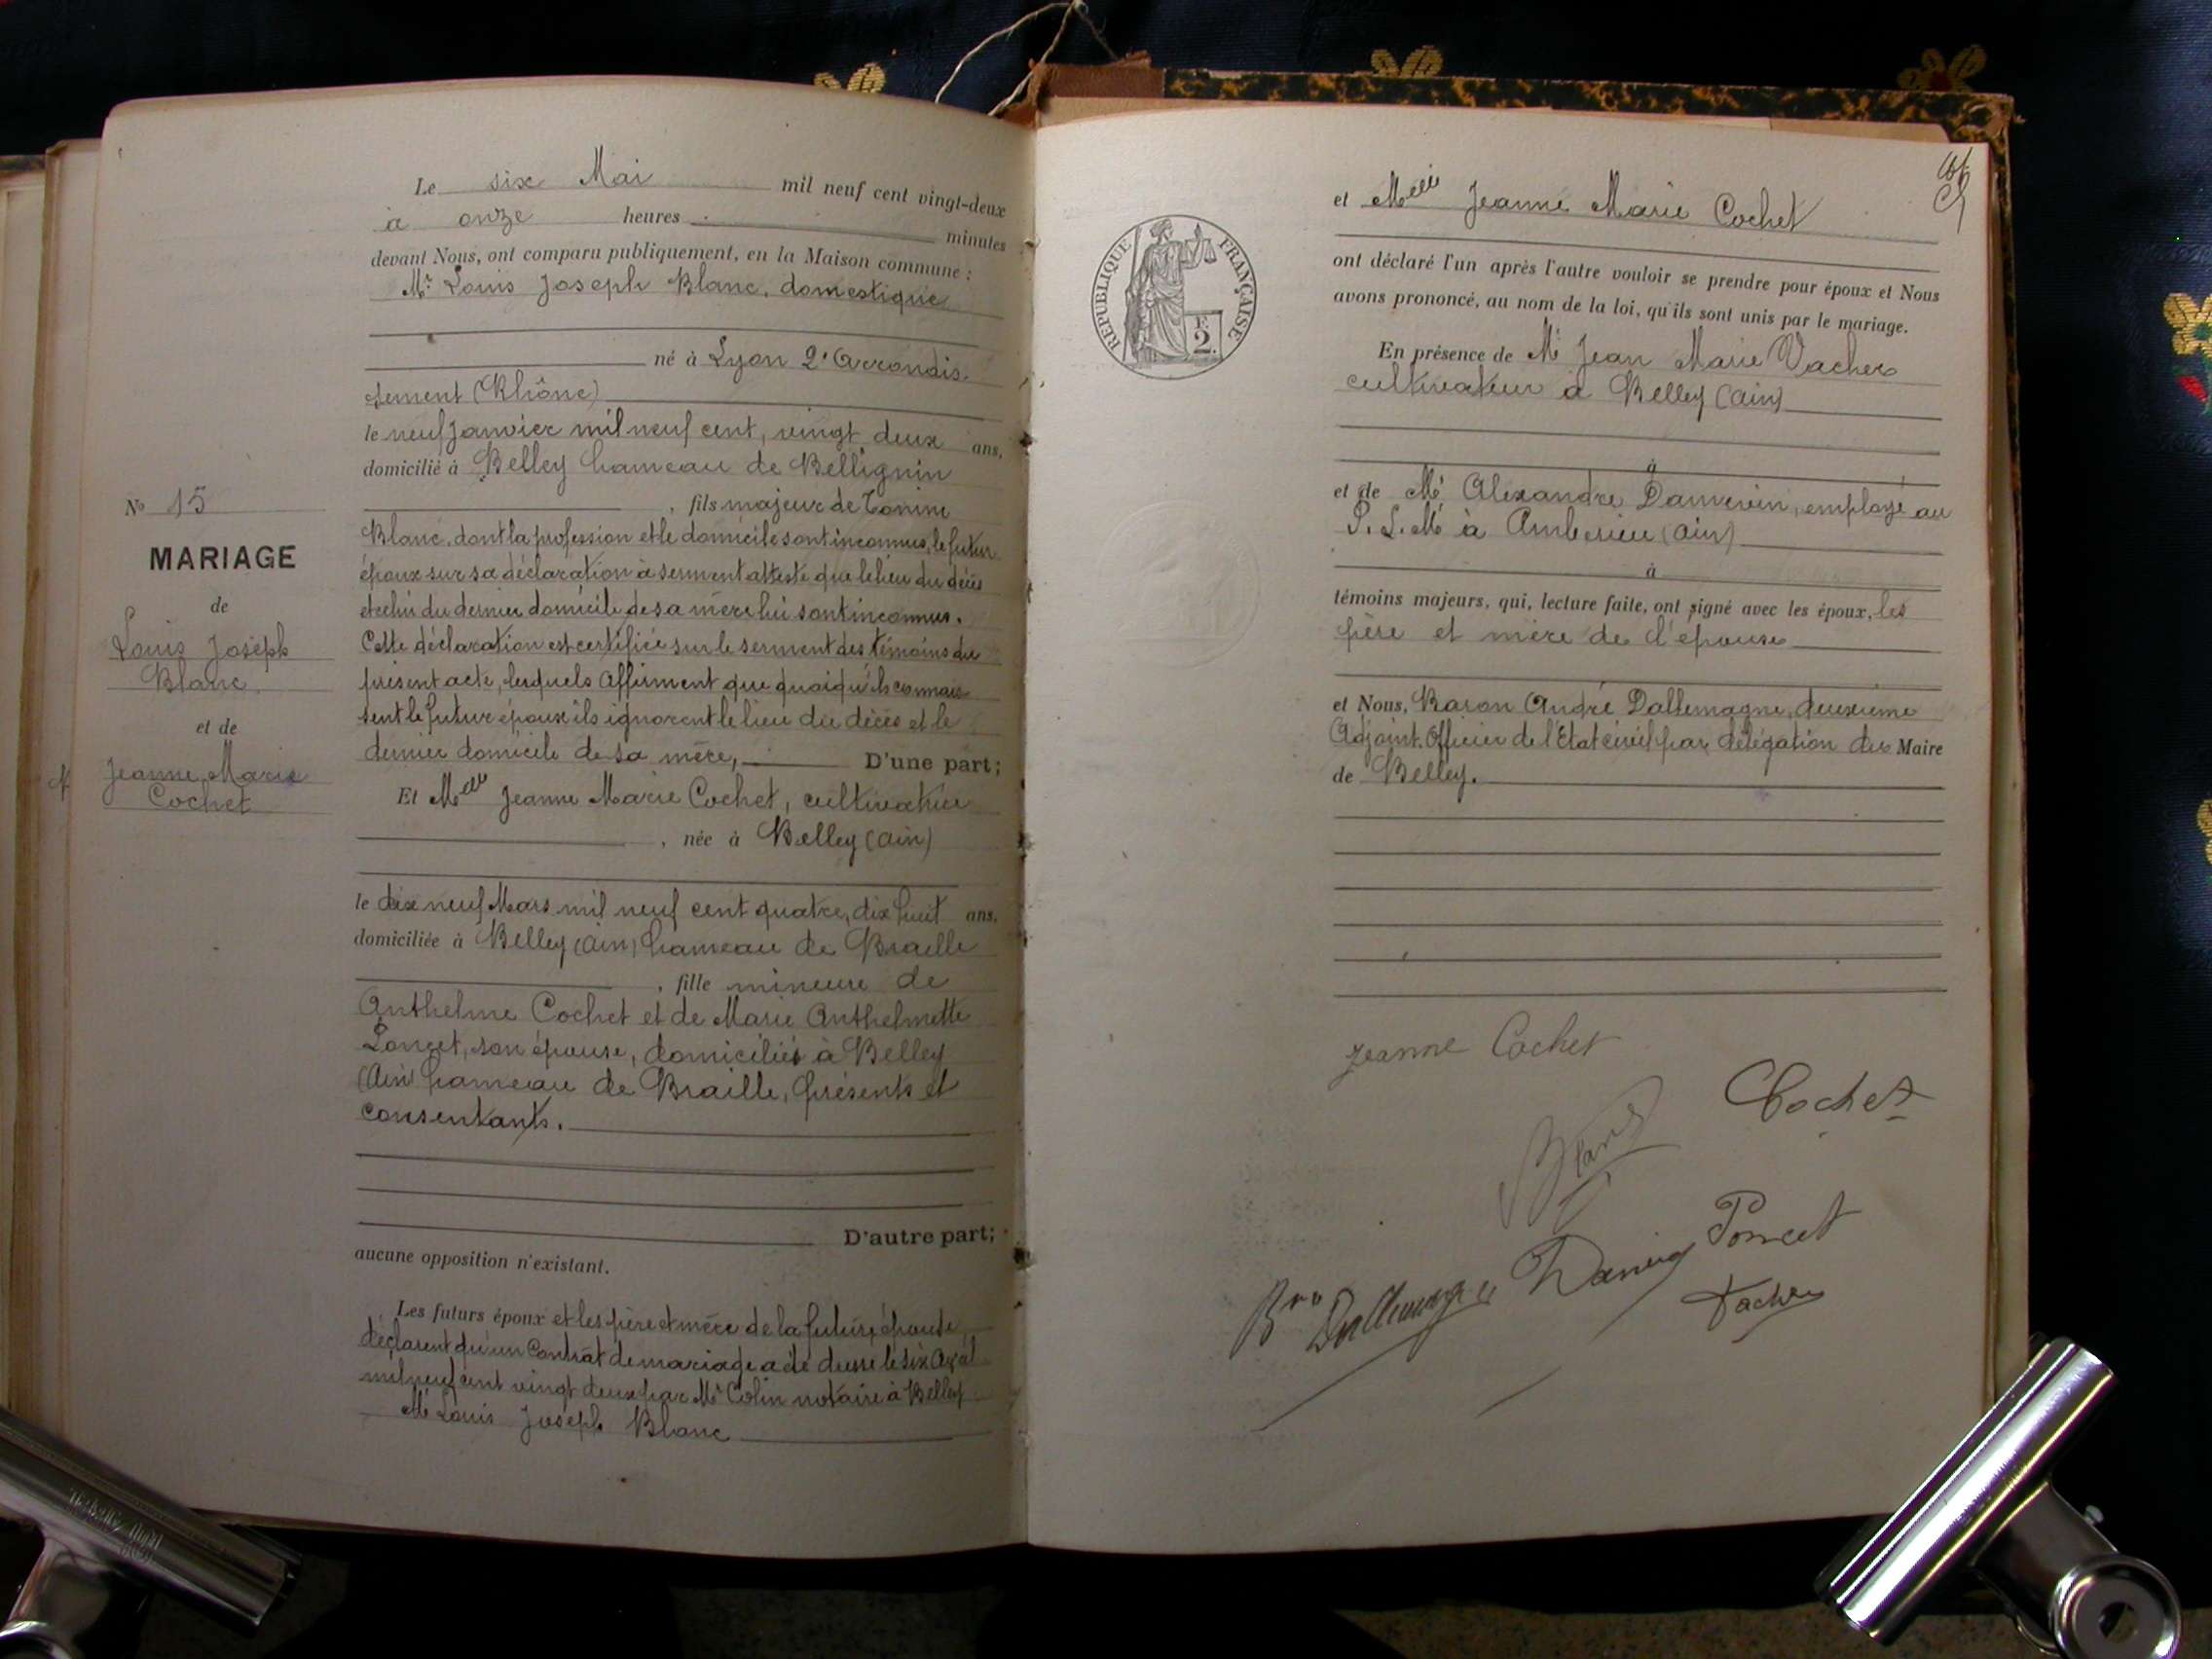 Le six Mai mil neuf cent vingt-deux
à onze heures minutes
devant Nous, ont comparu publiquement, en la Maison commune :
Mr Louis Joseph Blanc, domestique
né à Lyon 2e Arrondis-
sement (Rhône)
le neuf Janvier mil neuf cent, vingt deux ans,
domicilié à Belley hameau de Bellignin
, fils majeur de
Blanc, dont la profession et le domicile sont inconnus, le futur
époux sur sa déclaration à serment atteste que le lieu du décès
et celui du dernier domicile de sa mère lui sont inconnus.
Cette déclaration est certifiée sur le serment des témoins du
présent acte, lesquels affirment que quoiqu'ils connais-
sent le futur époux ils ignorent le lieu du décès et le
dernier domicile de sa mère, D'une part;
Et Melle Jeanne Marie Cochet, cultivatrice
, née à Belley (Ain)
le dix neuf Mars mil neuf cent quatre, dix huit ans,
domiciliée à Belley (Ain) hameau de Braille
, fille mineure de
Anthelme Cochet et de Marie Anthelmette
Poncet, son épouse, domiciliés à Belley
(Ain) hameau de Braille, présents et
consentants.
D'autre part;
aucune opposition n'existant.
Les futurs époux et les père et mère de la future épouse
déclarent qu'un Contrat de mariage a été dressé le six Avril
mil neuf cent vingt deux par Me Colin notaire à Belley
Mr Louis Joseph Blanc
No 15
MARIAGE
de
Louis Joseph
Blanc
et de
Jeanne Marie
Cochet
REPUBLIQUE FRANÇAISE
F.
2.
et Melle Jeanne Marie Cochet
ont déclaré l'un après l'autre vouloir se prendre pour époux et Nous
avons prononcé, au nom de la loi, qu'ils sont unis par le mariage.
En présence de Mr Jean Marie Vacher
cultivateur à Belley (Ain)
à
et de Mr Alexandre employé au
P. L. M. à Ambérieu (Ain)
à
témoins majeurs, qui, lecture faite, ont signé avec les époux, les
père et mère de l'épouse
et Nous, Baron André Dallemagne, deuxième
Adjoint. Officier de l'Etat civil par délégation du Maire
de Belley.
Jeanne Cochet
Cochet
Blanc
Poncet
Bon Dallemagne
Vacher